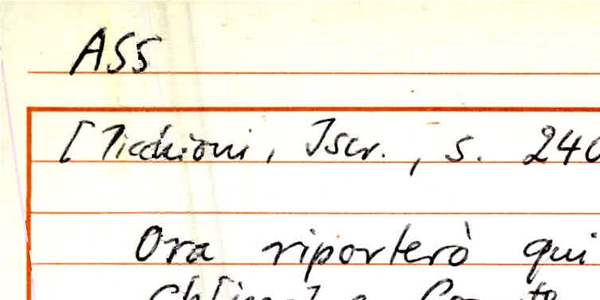 ASS
[Ticchioni, Iscr., s. 240
Ora riporterò qui